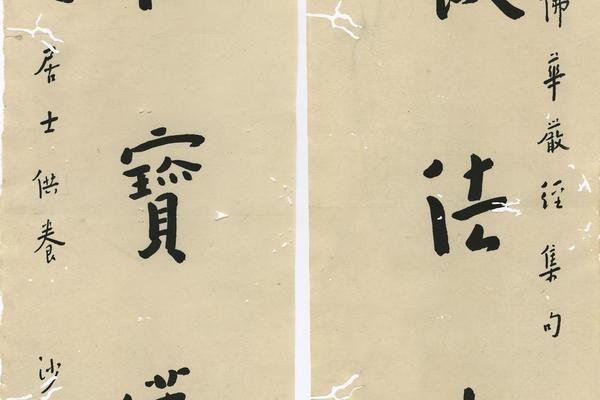 佛華嚴經集句
法
寶
居士供養 沙